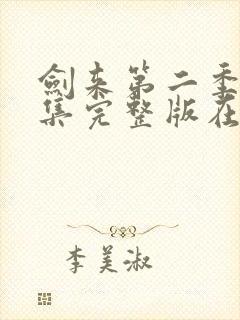 剑来第二季
集完整版在
李美淑